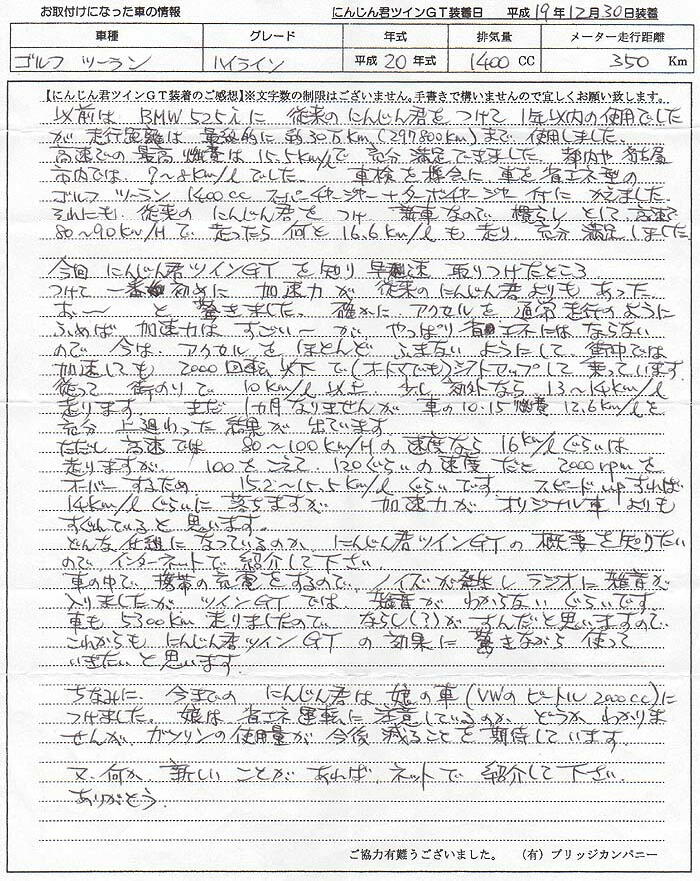 お取付けになった車の情報 にんじん君ツインGT装着日 平成19年12月30日装着
車種 グレード 年式 排気量 メーター走行距離
ゴルフ ツーラン ハイライン 平成 20 年式 1400 CC 350 Km
【にんじん君ツインGT装着のご感想】※文字数の制限はございません。手書きで構いませんので宜しくお願い致します。
以前は BMW525iに 従来のにんじん君をつけて 1年以内の使用でした
が 走行距離は 最終的に約30万Km(297800Km)まで 使用しました。
高速での最高燃費は 15.5Km/lで 充分満足できました。都内や
市内では 7〜8Km/lでした。 車検を機会に 車を省エネ型の
ゴルフ ツーラン 1400cc スーパーチャージャー+ターボチャージャー付に かえました
それにも 従来の にんじん君を つけ 新車なので 慣らし として 高速で
80〜90Km/Hで 走ったら 何と 16.6Km/l も走り 充分 満足しました
今回 にんじん君ツインGT を知り 早速 取りつけたところ
つけて 一番初めに 加速力が 従来のにんじん君よりもあった
お〜 と 驚きました。 確かに アクセルを 通常走行のように
ふめば 加速力は すごい〜 が やっぱり省エネにはならない
ので 今は アクセルを ほとんど ふまないようにして 街中では
加速しても 2000回転以下で(オートマでも)シフトアップして乗っています
従って 街のりで 10Km/l以上 少し郊外なら 13〜14Km/l
走ります。 まだ 1カ月なりませんが 車の10.15燃費 12.6Km/lを
充分 上廻わった 結果が 出ています
ただし 高速では 80〜100Km/Hの速度なら 16Km/lぐらいは
走りますが 100をこえて 120ぐらいの速度だと 2000rpmを
オーバーするため 15.2〜15.5Km/lぐらいです スピードupすれば
14Km/lぐらいに 落ちますが 加速力が オリジナル車よりも
すぐれていると思います。
どんな仕組になっているのか にんじん君ツインGTの概要を知りたい
ので インターネットで 紹介して下さい
車の中で 携帯の充電をするので ノイズが発生し ラジオに雑音が
入りましたが ツインGTでは 雑音が わからない ぐらいです
車も5300Km走りましたので ならし(?)が すんだと思いますので
これからも にんじん君ツインGT の効果に 驚きながら 使って
いきたいと思います
ちなみに 今までの にんじん君は 娘の車(VWのビートル2000cc)に
つけました。娘は 省エネ運転に 注意しているのか どうか わかりま
せんが、ガソリンの使用量が 今後 減ることを期待しています。
又 何か 新しい ことが あれば ネットで 紹介して下さい
ありがとう
ご協力有難うございました。 (有)ブリッジカンパニー